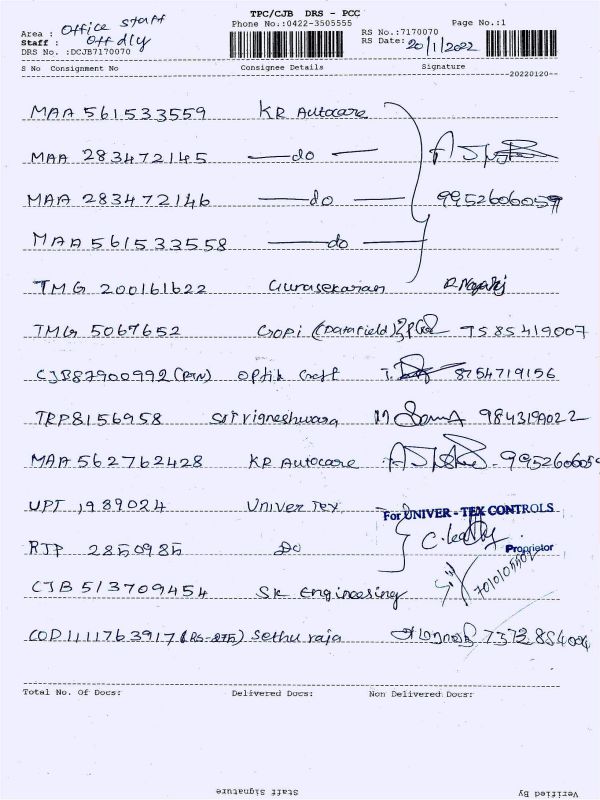 TPC/CJB DRS - PCC
Area : Office staff Phone No.:0422-3505555 Page No.:1
Staff : Off dly RS No.:7170070
DRS No. :DCJB7170070 RS Date: 20/1/2022
S No Consignment No Consignee Details Signature
--20220120--
MAA 561533559 KR Autocare
MAA 283472145 —do—
MAA 283472146 —do— 9952606059
MAA 561533558 —do—
TMG 200161622 Gunasekaran
TMG 5067652 Gopi (Datafield) 7585419007
CJB87900992 (RTN) Optik Craft 8754719156
TRP8156958 Sri Vigneshwara
MAA 562762428 KR Autocare 9952606059
UPT 1989024 Univer Tex
For UNIVER - TEX CONTROLS
RJP 2850985 Do
Proprietor
CJB 513709454 SK Engineering 7010105502
COD111763917 Sethu raja
Total No. Of Docs: Delivered Docs: Non Delivered Docs:
Staff Signature Verified By